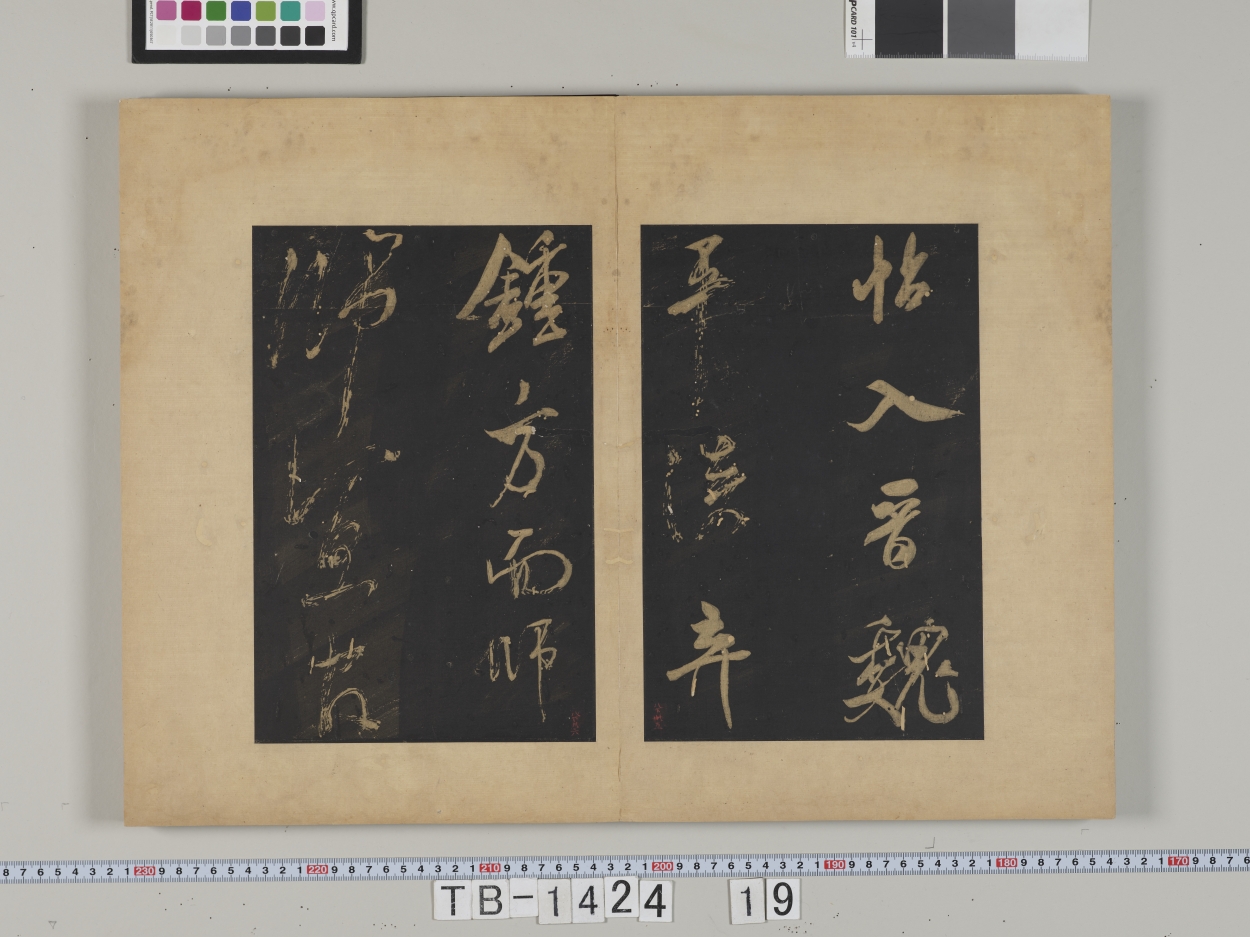 帖入晉魏
平淡弃
鍾方而師
師宜官
CARD 101
www.qpcard.com
8 7 6 5 4 3 2 1 230 9 8 7 6 5 4 3 2 1 220 9 8 7 6 5 4 3 2 1 210 9 8 7 6 5 4 3 2 1 200 9 8 7 6 5 4 3 2 1 190 9 8 7 6 5 4 3 2 1 180 9 8 7 6 5 4 3 2 1 170 9 8 7 6
TB-1424 19